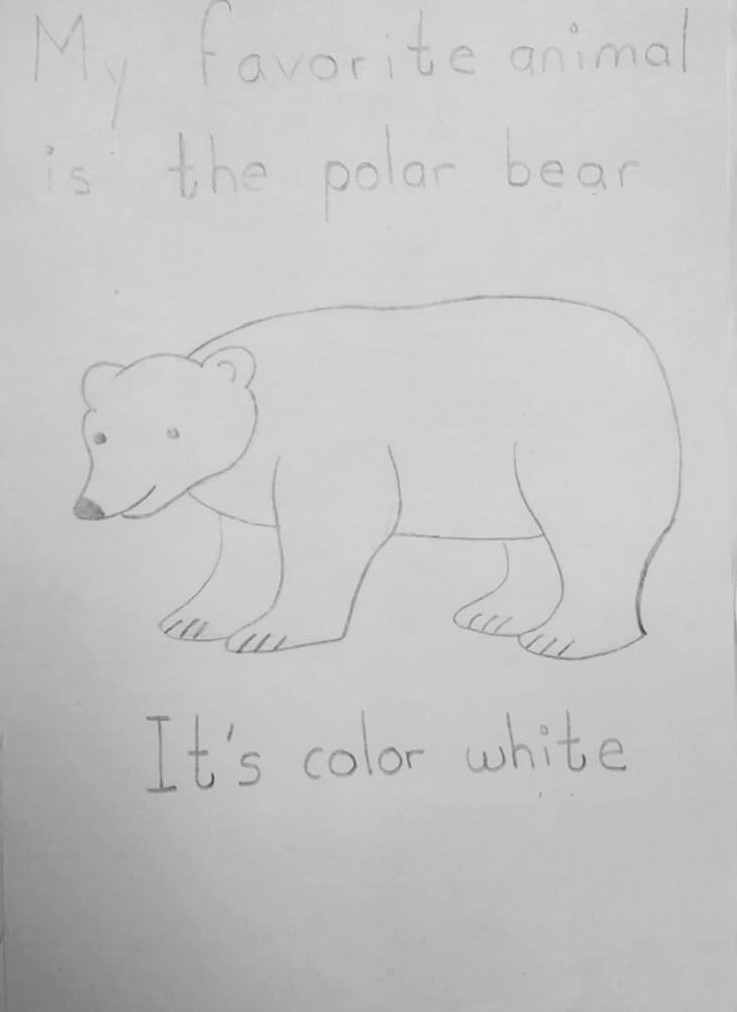 My favorite animal
is the polar bear
It's color white